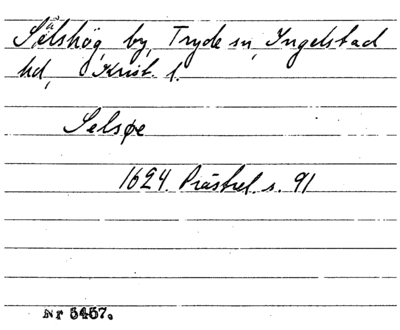 Sälshög, by, Tryde sn, Ingelstad
hd, Krist. l.
Selsøe
1624. Prästrel. s. 91
Nr 5457.